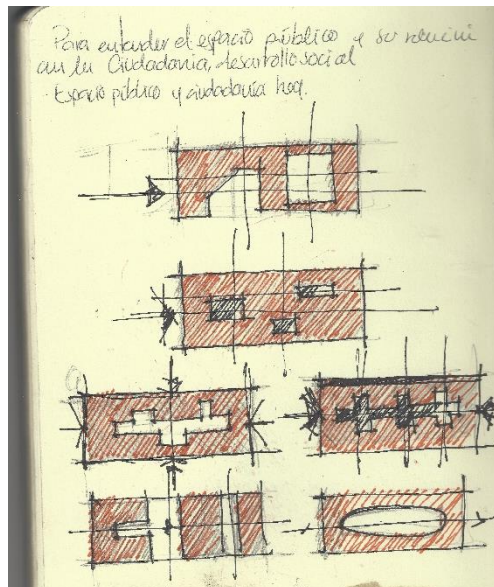 Para entender el espacio público y su relación
con la Ciudadanía, desarrollo social
Espacio público y ciudadanía hoy.